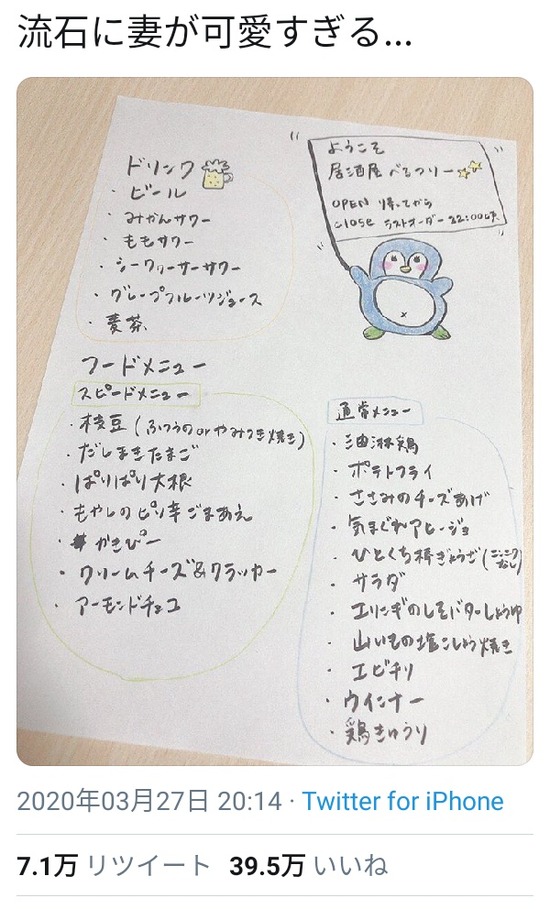 流石に妻が可愛すぎる...
ようこそ
居酒屋 べるつりー
OPEN 帰ってから
CLOSE ラストオーダー 22:00
ドリンク
・ビール
・みかんサワー
・ももサワー
・シークヮーサーサワー
・グレープフルーツジュース
・麦茶
フードメニュー
スピードメニュー
・枝豆(ふつうの or やみつき焼き)
・だしまきたまご
・ぱりぱり大根
・もやしのピリ辛ごまあえ
・かきぴー
・クリームチーズ&クラッカー
・アーモンドチョコ
通常メニュー
・油淋鶏
・ポテトフライ
・ささみのチーズあげ
・気まぐれアヒージョ
・ひとくち棒ぎょうざ(ニンニクなし)
・サラダ
・エリンギのしそバターしょうゆ
・山いもの塩こしょう焼き
・エビチリ
・ウインナー
・鶏きゅうり
2020年03月27日 20:14 · Twitter for iPhone
7.1万 リツイート 39.5万 いいね